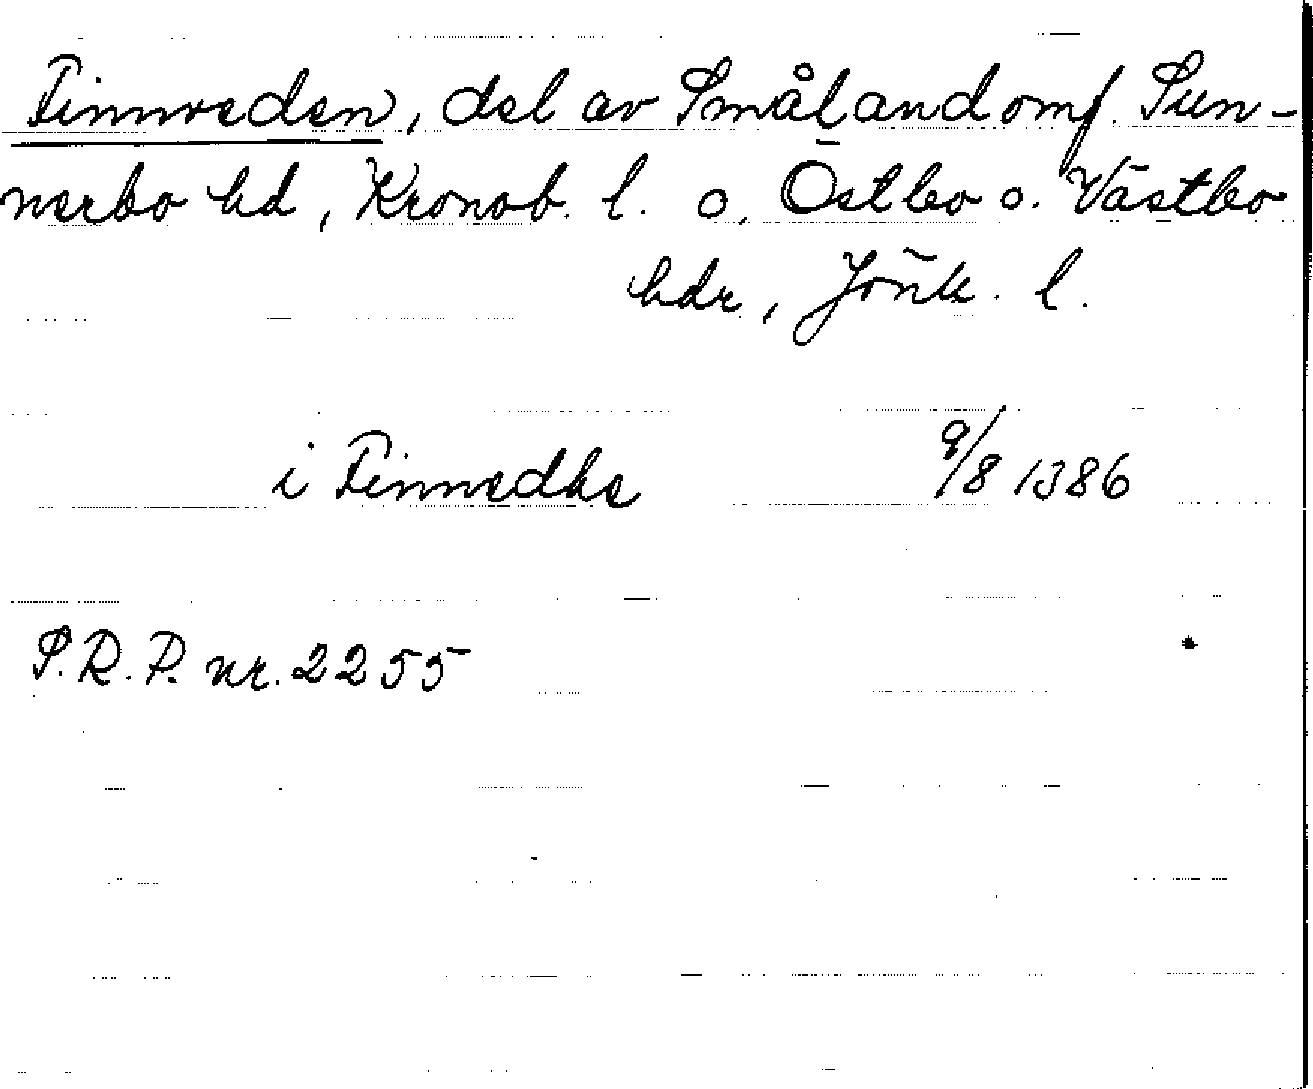 Finnveden, del av Småland omf. Sun-
nerbo hd, Kronob. l. o. Östbo o. Västbo
hdr, Jönk. l.
i Finnedhe 9/8 1386
S.R.P. nr. 2255